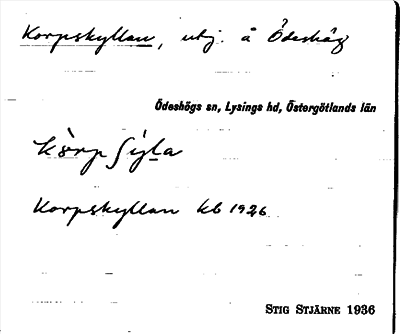 Korpskyllan, utj. å Ödeshög
Ödeshögs sn, Lysings hd, Östergötlands län
Korpskyllan kb 1926
STIG STJÄRNE 1936